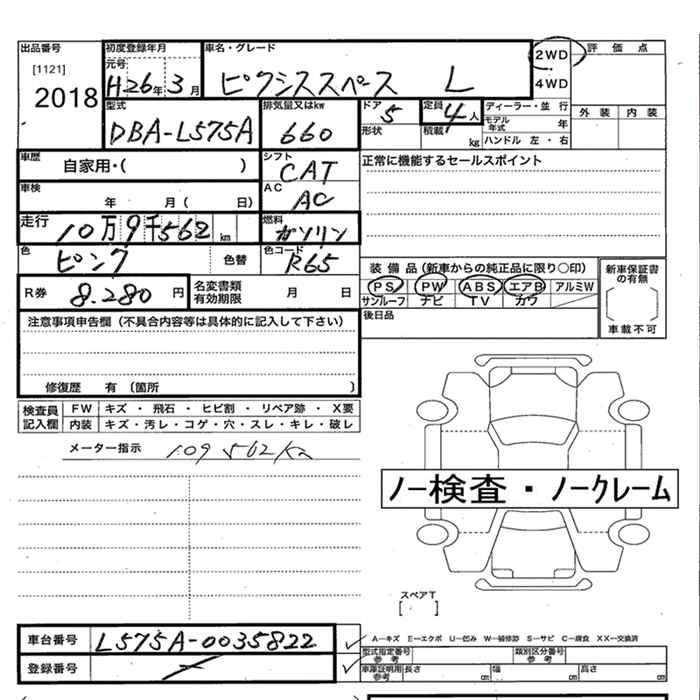 出品番号 初度登録年月 車名・グレード 評価点
[1121] 元号
2018 H26年 3月 ピクシススペース L 2WD
4WD
型式 排気量又はkw ドア 定員 ディーラー・並 行 外 装 内 装
DBA-L575A 660 5 4人 モデル年式 年
形状 積載 kg ハンドル 左・右
車歴 自家用・( ) シフト CAT 正常に機能するセールスポイント
車検 年 月( 日) AC AC
走行 10万9千562km 燃料 ガソリン
色 ピンク 色替 色コード R65 装備品(新車からの純正品に限り〇印) 新車保証書の有無
R券 8.280円 名変書類有効期限 月 日 PS PW ABS エアB アルミW
サンルーフ ナビ TV カワ
注意事項申告欄(不具合内容等は具体的に記入して下さい) 後日品 車載不可
修復歴 有 (箇所 )
検査員記入欄 FW キズ ・ 飛石 ・ ヒビ割 ・ リペア跡 ・ X要
内装 キズ・汚レ・コゲ・穴・スレ・キレ・破レ
メーター指示 109562km
ノー検査・ノークレーム
スペアT
[ ]
車台番号 L575A-0035822 A－キズ E－エクボ U－凹み W－補修跡 S－サビ C－腐食 XX－交換済
型式指定番号参考 類別区分番号参考
登録番号 車庫証明用参考 長さ cm 幅 cm 高さ cm